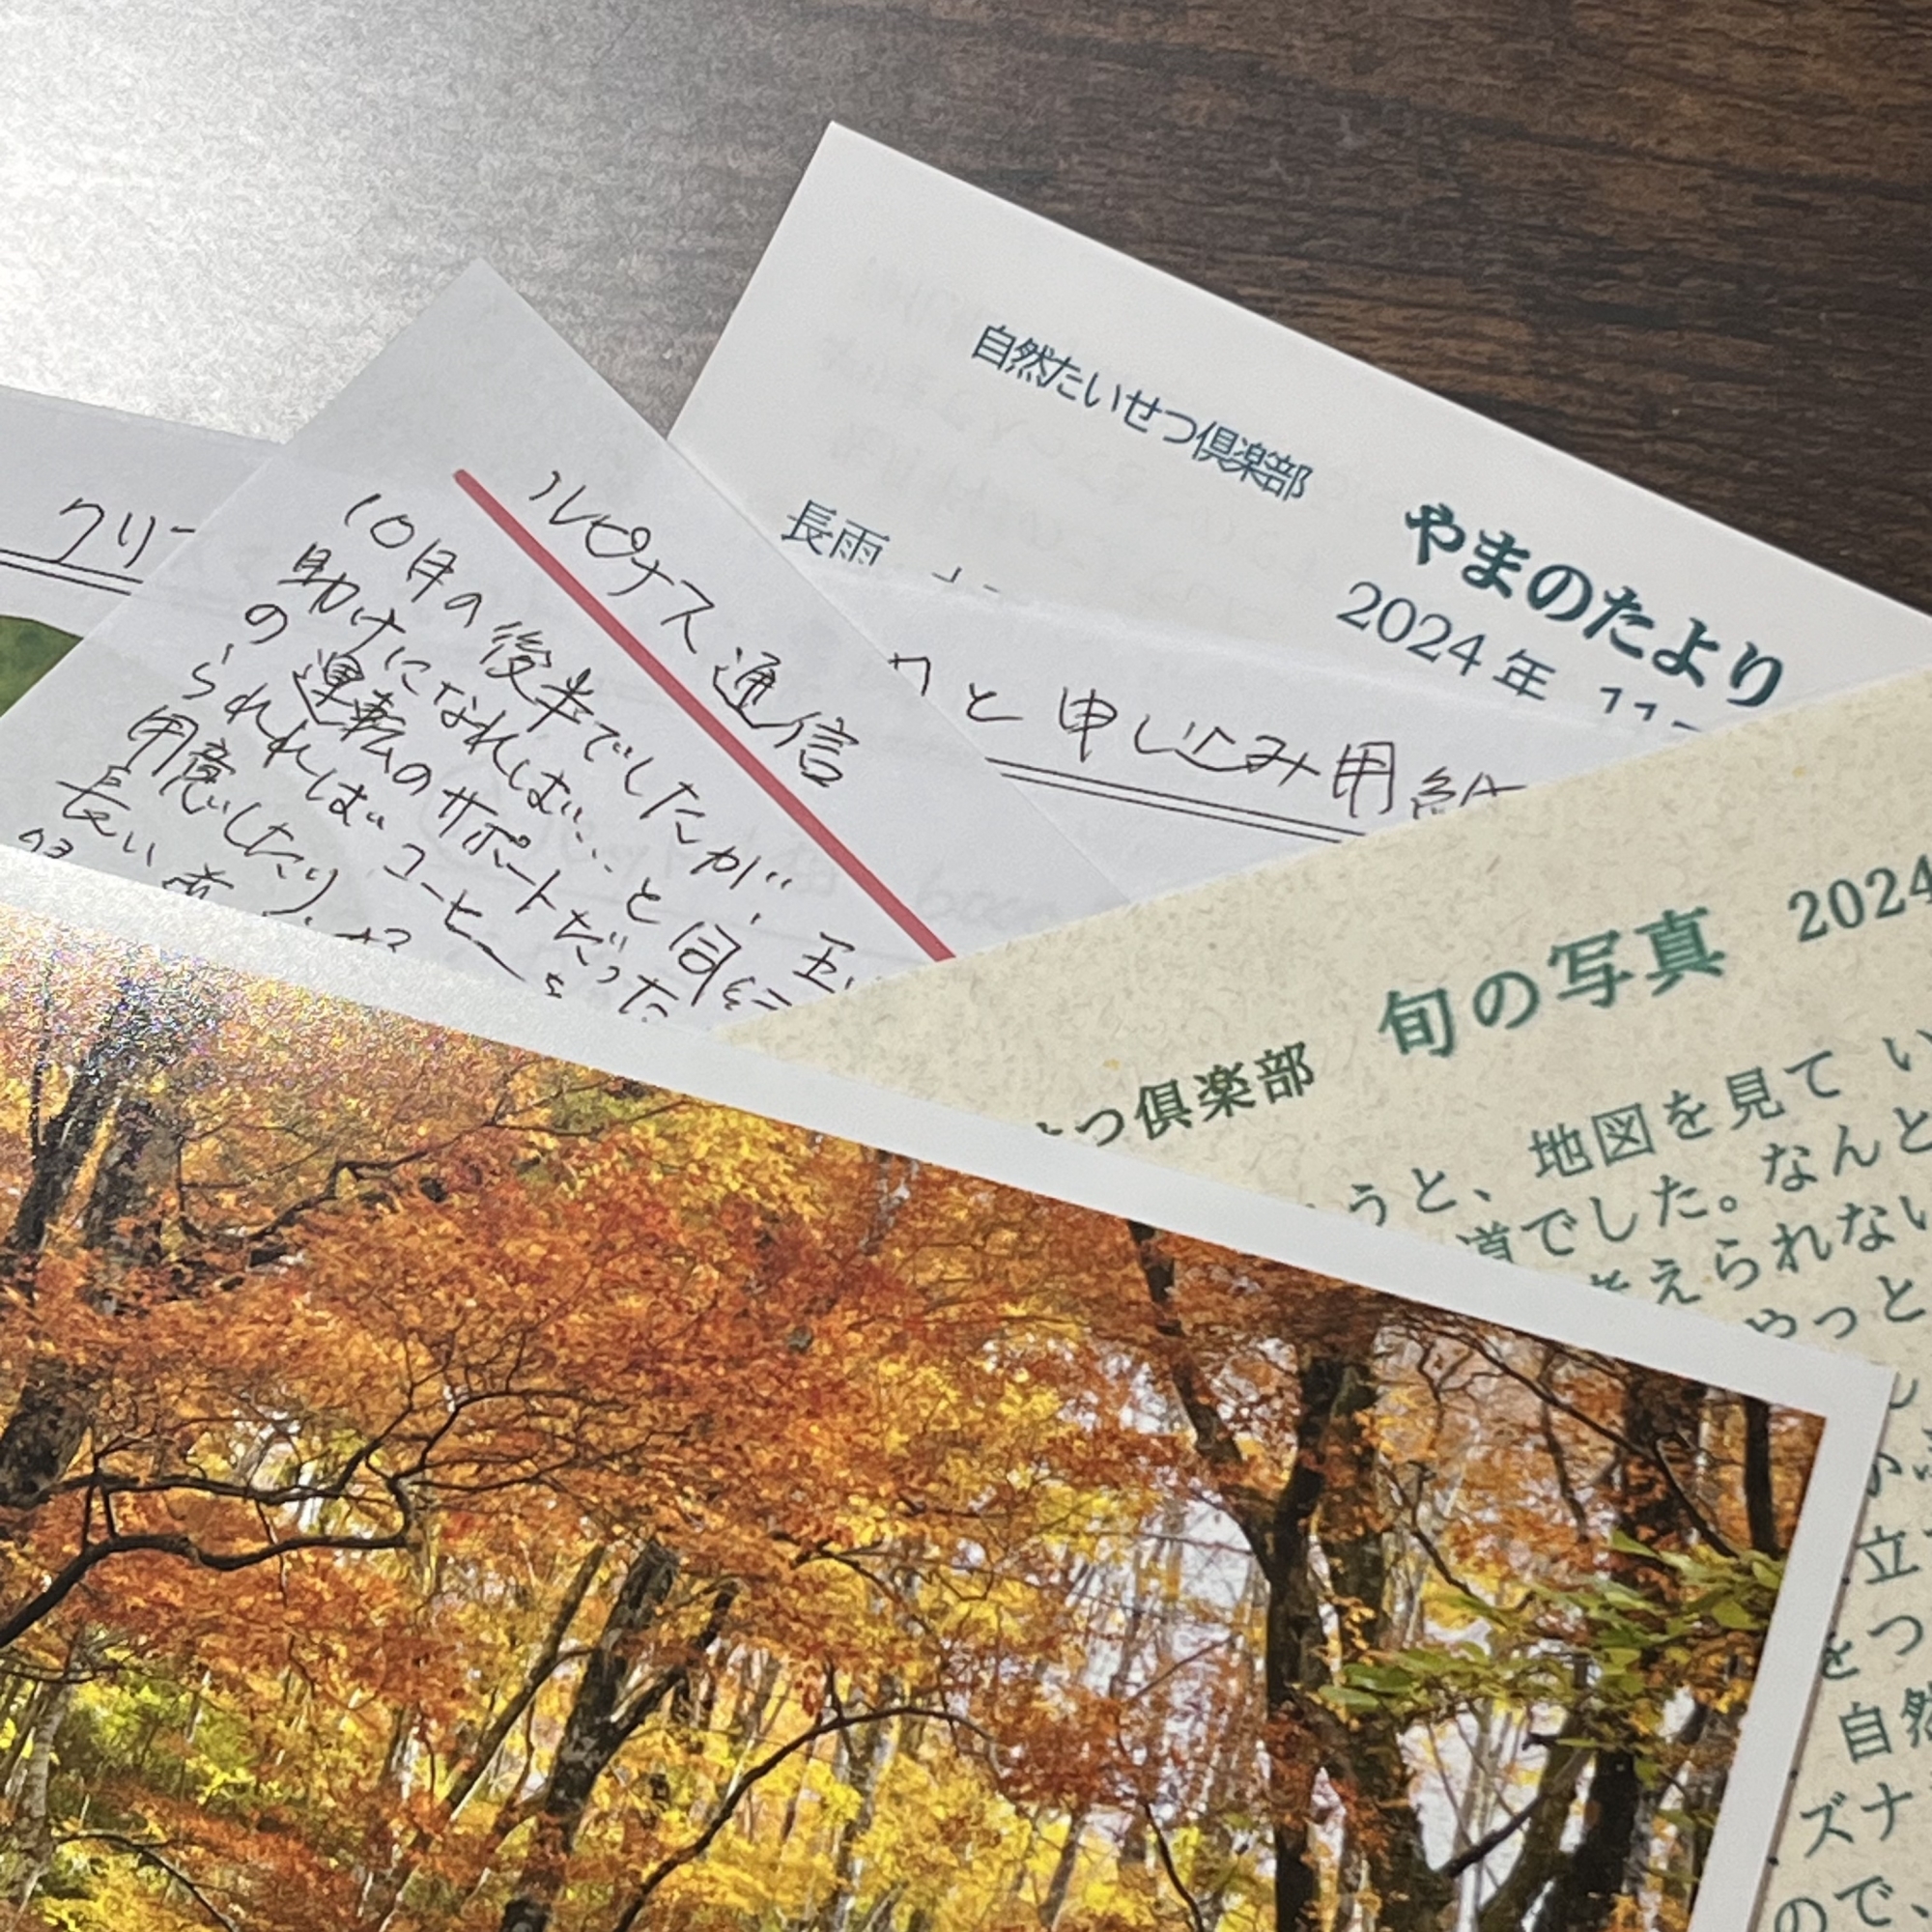 自然たいせつ倶楽部
やまのたより
2024年
長雨
クリ
と申し込み用紙
ルピナス通信
10月の後半でしたが、
助けになれれば…と同行
の運転のサポートだった
られれば コーヒーを
用意したり、
長い
つ倶楽部 旬の写真 2024
うと、地図を見て い
道でした。なんと
考えられない
やっと
立
をつ
自然
ズナ
ので、